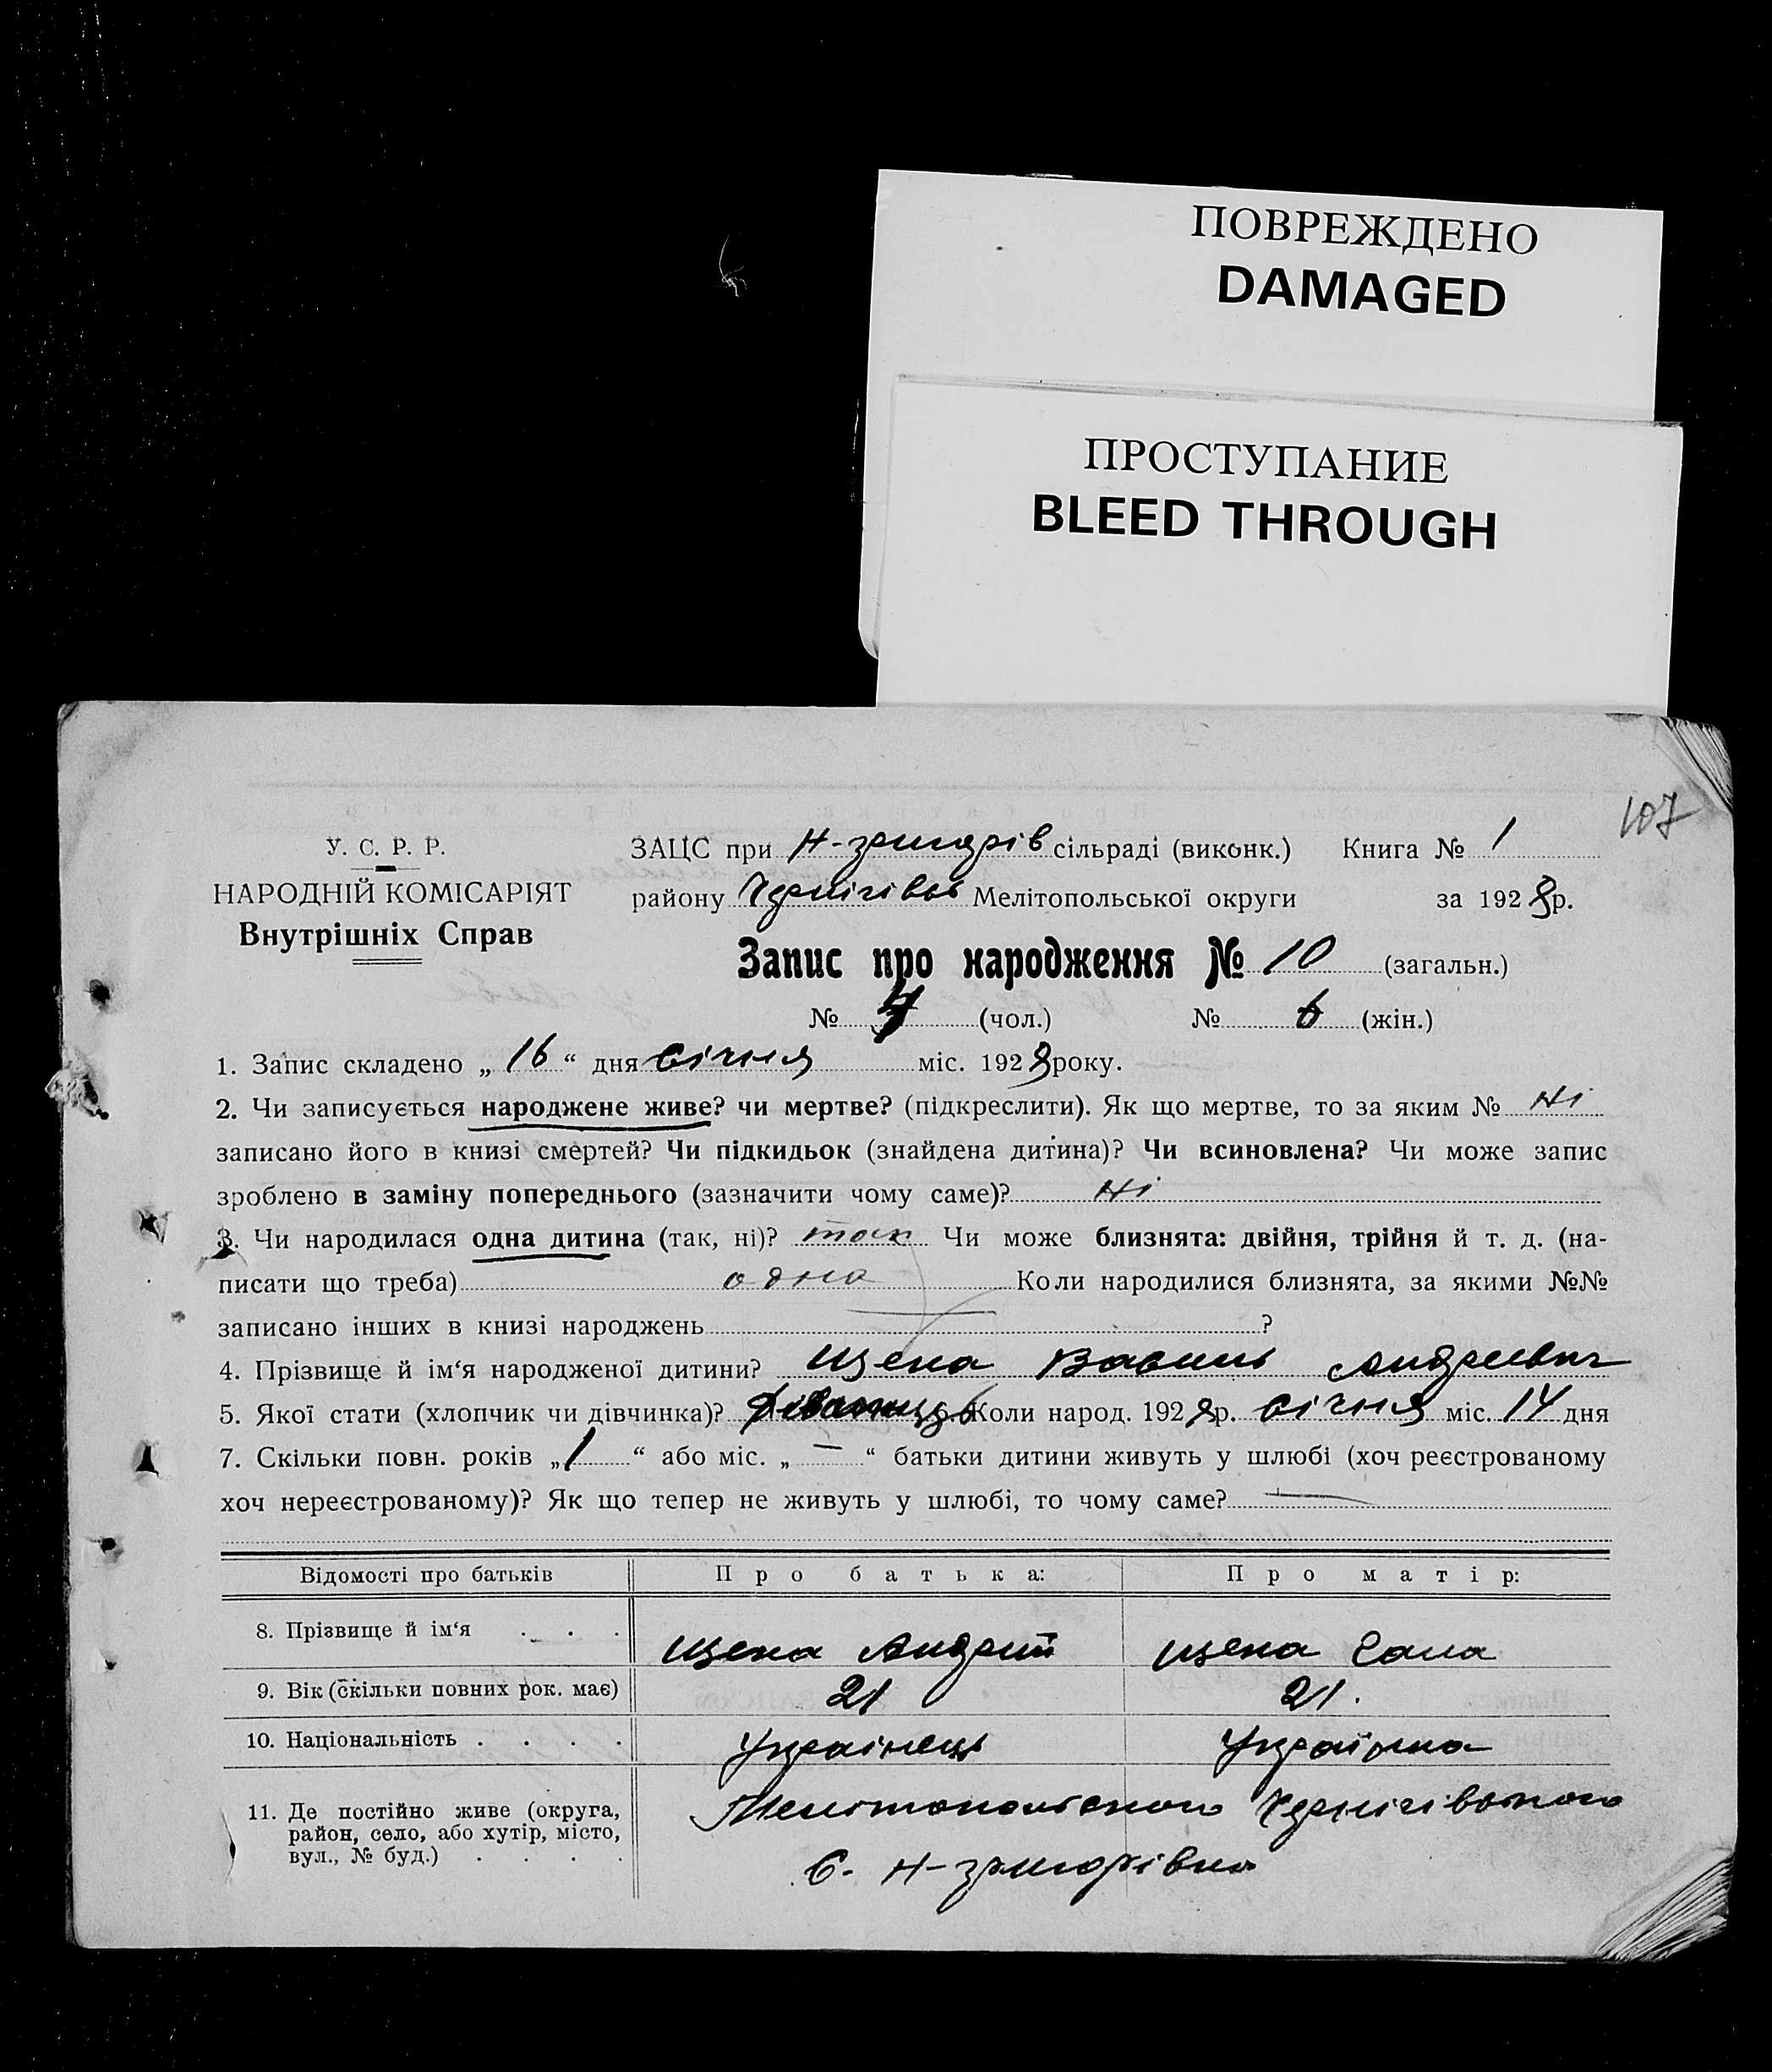 ПОВРЕЖДЕНО
DAMAGED
ПРОСТУПАНИЕ
BLEED THROUGH
107
У. С. Р. Р.
НАРОДНІЙ КОМІСАРІЯТ
Внутрішніх Справ
ЗАЦС при Н-григорів сільраді (виконк.) Книга № 1
району Чернігівсь Мелітопольської округи за 1928 р.
Запис про народження № 10 (загальн.)
№ 4 (чол.) № 6 (жін.)
1. Запис складено „ 16 “ дня січня міс. 1928 року.
2. Чи записується народжене живе? чи мертве? (підкреслити). Як що мертве, то за яким № Ні
записано його в книзі смертей? Чи підкидьок (знайдена дитина)? Чи всиновлена? Чи може запис
зроблено в заміну попереднього (зазначити чому саме)? Ні
3. Чи народилася одна дитина (так, ні)? так Чи може близнята: двійня, трійня й т. д. (на-
писати що треба) одна Коли народилися близнята, за якими №№
записано інших в книзі народжень ?
4. Прізвище й ім‘я народженої дитини? Щека Василь Андреевич
5. Якої стати (хлопчик чи дівчинка)? 6. Коли народ. 1928 р. січня міс. 14 дня
7. Скільки повн. років „ 1 “ або міс. „ — “ батьки дитини живуть у шлюбі (хоч реєстрованому
хоч нереєстрованому)? Як що тепер не живуть у шлюбі, то чому саме? —
Відомості про батьків Про батька: Про матір:
8. Прізвище й ім‘я . . . Щека Андрій Щека Сана
9. Вік (скільки повних рок. має) 21 21.
10. Національність . . . . Українець Українка
11. Де постійно живе (округа, Мелітопольского Чернігівского
район, село, або хутір, місто,
вул., № буд.) . . . . С. Н-григорівка